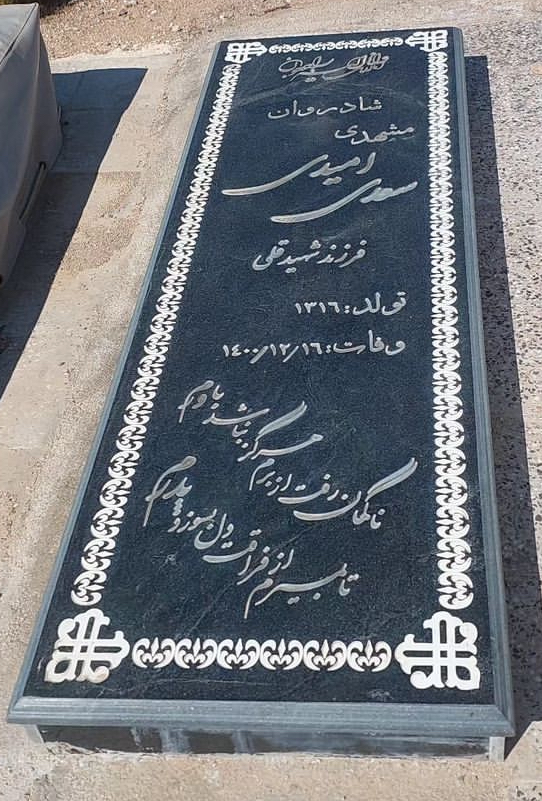 شادروان
مشهدی
سعدی امیدی
فرزند شهید قلی
تولد: ۱۳۱۶
وفات: ۱۴۰۰/۱۲/۱۶
ناگهان رفت از برم هرگز نباشد باورم
تا بمیرم از فراقت دل بسوزد پدرم